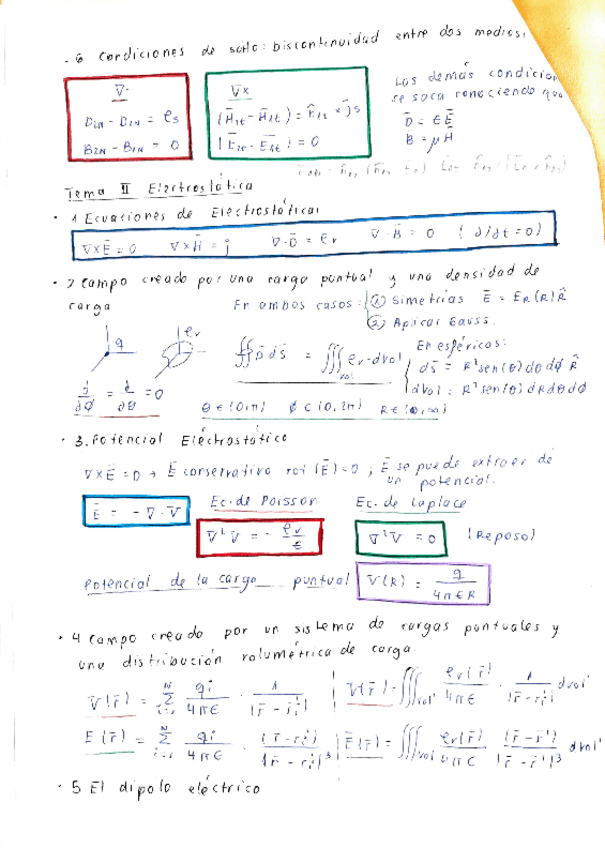 - 6 Condiciones de salto: Discontinuidad entre dos medios:
∇·
D₁ₙ - D₂ₙ = ρs
B₂ₙ - B₁ₙ = 0
∇x
(H̄₁t - H̄₂t) = n̂₁₂ × j̄s
(Ē₂t - Ē₁t) = 0
Las demás condicion
se saca conociendo que
D̄ = ϵĒ
B = μH̄
Tema II Electrostática
· 1 Ecuaciones de Electrostática:
∇xĒ = 0 ∇xH̄ = j ∇·D̄ = ρv ∇·B̄ = 0 (∂/∂t = 0)
· 2 Campo creado por una carga puntual y una densidad de
carga
En ambos casos: ① Simetrías Ē = E_R(R) R̂
② Aplicar Gauss.
q ρv
∯ D̄ ds̄ = ∭vol ρv · dvol
En esféricos:
ds̄ = R²sen(θ) dθ dϕ R̂
dvol = R²sen(θ) dR dθ dϕ
∂/∂ϕ = ∂/∂θ = 0
θ ∈ (0,π) ϕ ∈ (0,2π) R ∈ (0,∞)
· 3. Potencial Eléctrostático
∇xĒ = 0 → Ē conservativo rot (Ē) = 0 ; Ē se puede extraer de
un potencial.
Ē = - ∇ · V̄
Ec. de Poisson
∇²V̄ = - ρv/ϵ
Ec. de Laplace
∇²V = 0 (Reposo)
Potencial de la carga puntual V(R) = q/4πϵR
· 4 Campo creado por un sistema de cargas puntuales y
una distribución volumétrica de carga
V̄(r̄) = Σᴺ qi/4πϵ · 1/|r̄ - r̄i'| | V̄(r̄) = ∭vol' ρv(r̄)/4πϵ · 1/|r̄-r̄'| dvol'
E(r̄) = Σᴺ qi/4πϵ · (r̄ - r̄i')/|r̄ - r̄i'|³ | Ē(r̄) = ∭vol ρv(r̄)/4πϵ (r̄-r̄')/|r̄-r̄'|³ dvol'
· 5 El dipolo eléctrico